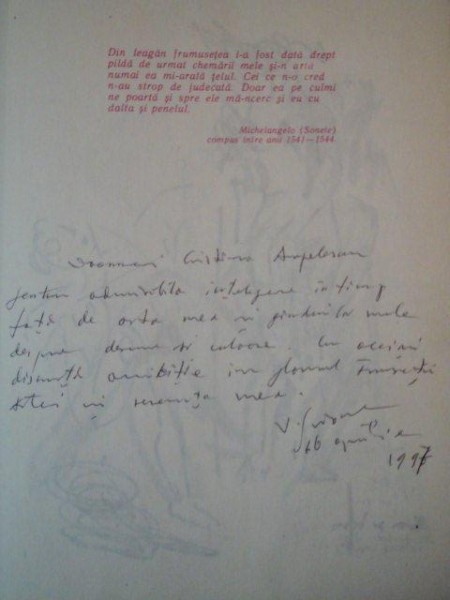 Din leagăn frumusețea i-a fost dată drept
pildă de urmat chemării mele și-n artă
numai ea mi-arată țelul. Cei ce n-o cred
n-au strop de judecată. Doar ea pe culmi
ne poartă și spre ele mă-ncerc și eu cu
dalta și penelul.
Michelangelo (Sonete)
compus între anii 1541—1544.
Doamnei Cristina Angelescu
pentru admirabila înțelegere în timp
față de arta mea și gândurile mele
despre desene și culoare. Cu
în
și mea.
16 aprilie
1997